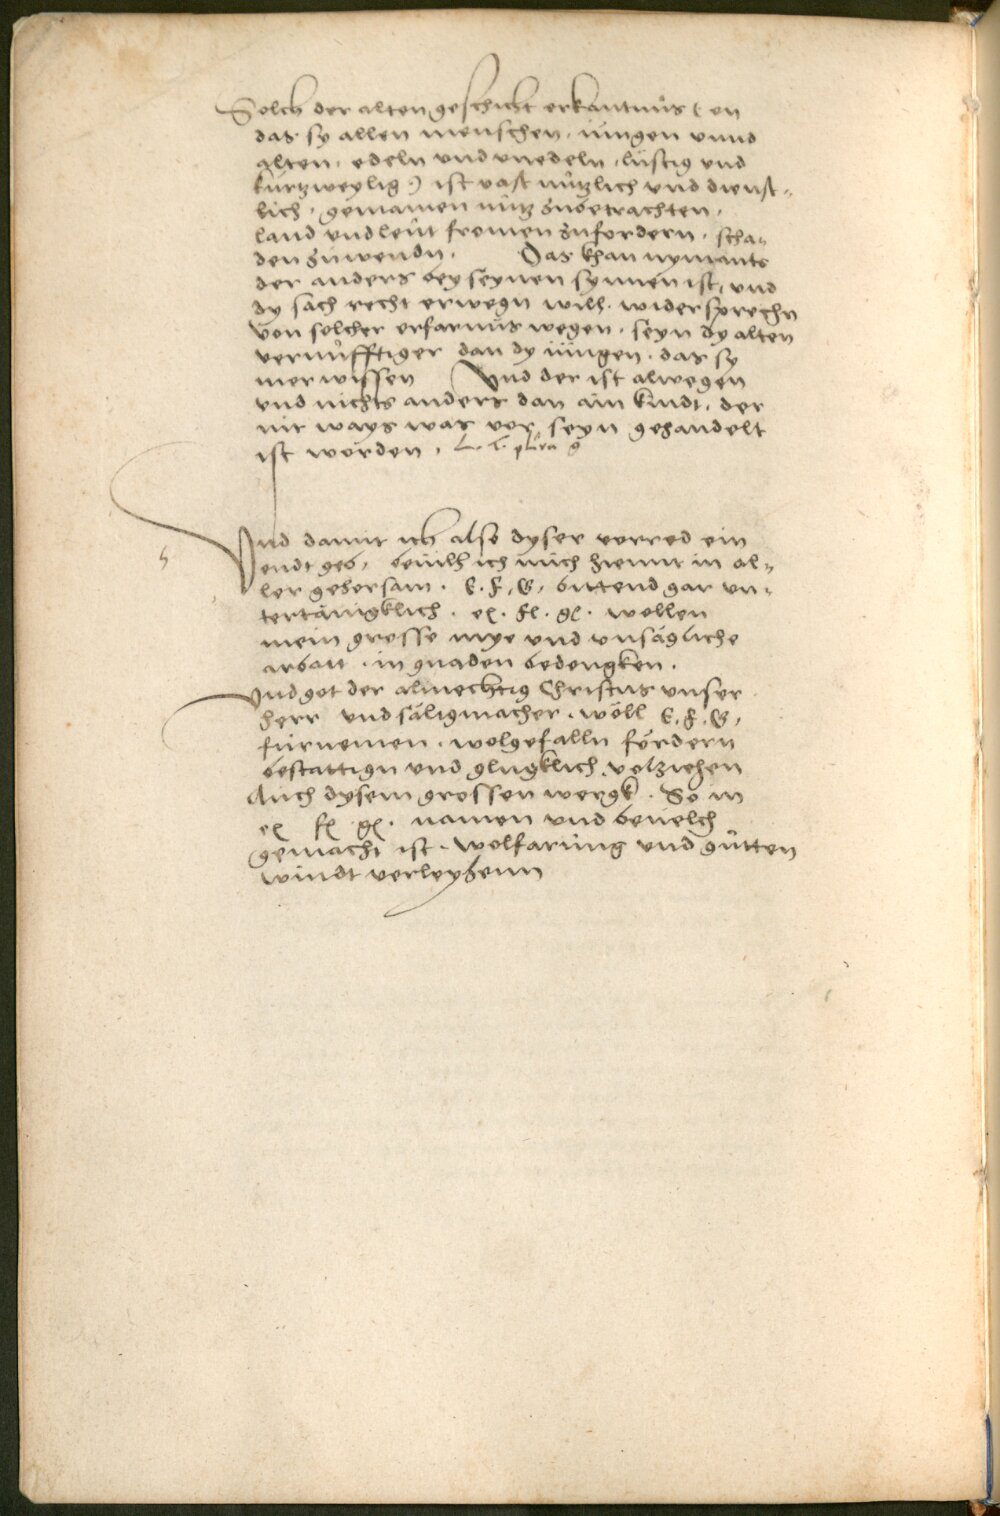 Solch der alten geschicht erkantnüs ( on
das sy allen menschen, iungen vnnd
alten, edeln vnd vnedeln, lüstig vnd
kurtzweylig ) ist vast nützlich vnd dienst-
lich, gemainen nütz zubetrachten,
land vnd leüt fromen zufordern, scha-
den zuwendn, Das khan nymants
der anders bey seynen synnen ist, vnd
dy sach recht erwegn will, widersprechn
von solcher erfarnüs wegen, seyn dy alten
vernüfftiger dan dy iüngen, das sy
mer wissen Vnd der ist alwegen
vnd nichts anders dan ain kindt, der
nit ways was vor seyn gehandelt
ist worden,
Vnd damit ich also dyser vorred ein
endt geb, beuilh ich mich hiemit in al-
ler gehorsam. E. F. G, bittend gar vn-
tertänigklich. e. fl. g. wollen
mein grosse mye vnd vnsägliche
arbait, in gnaden bedengken.
Vnd got der almechtig Christus vnser
herr vnd säligmacher, wöll E. F. G,
fürnemen, wolgefalln fördern
bestattign vnd glugklich volziehen
Auch dysem grossen wergk. So in
e fl g. namen vnd beuelch
gemacht ist, wolfarüng vnd gütten
windt verleyhenn